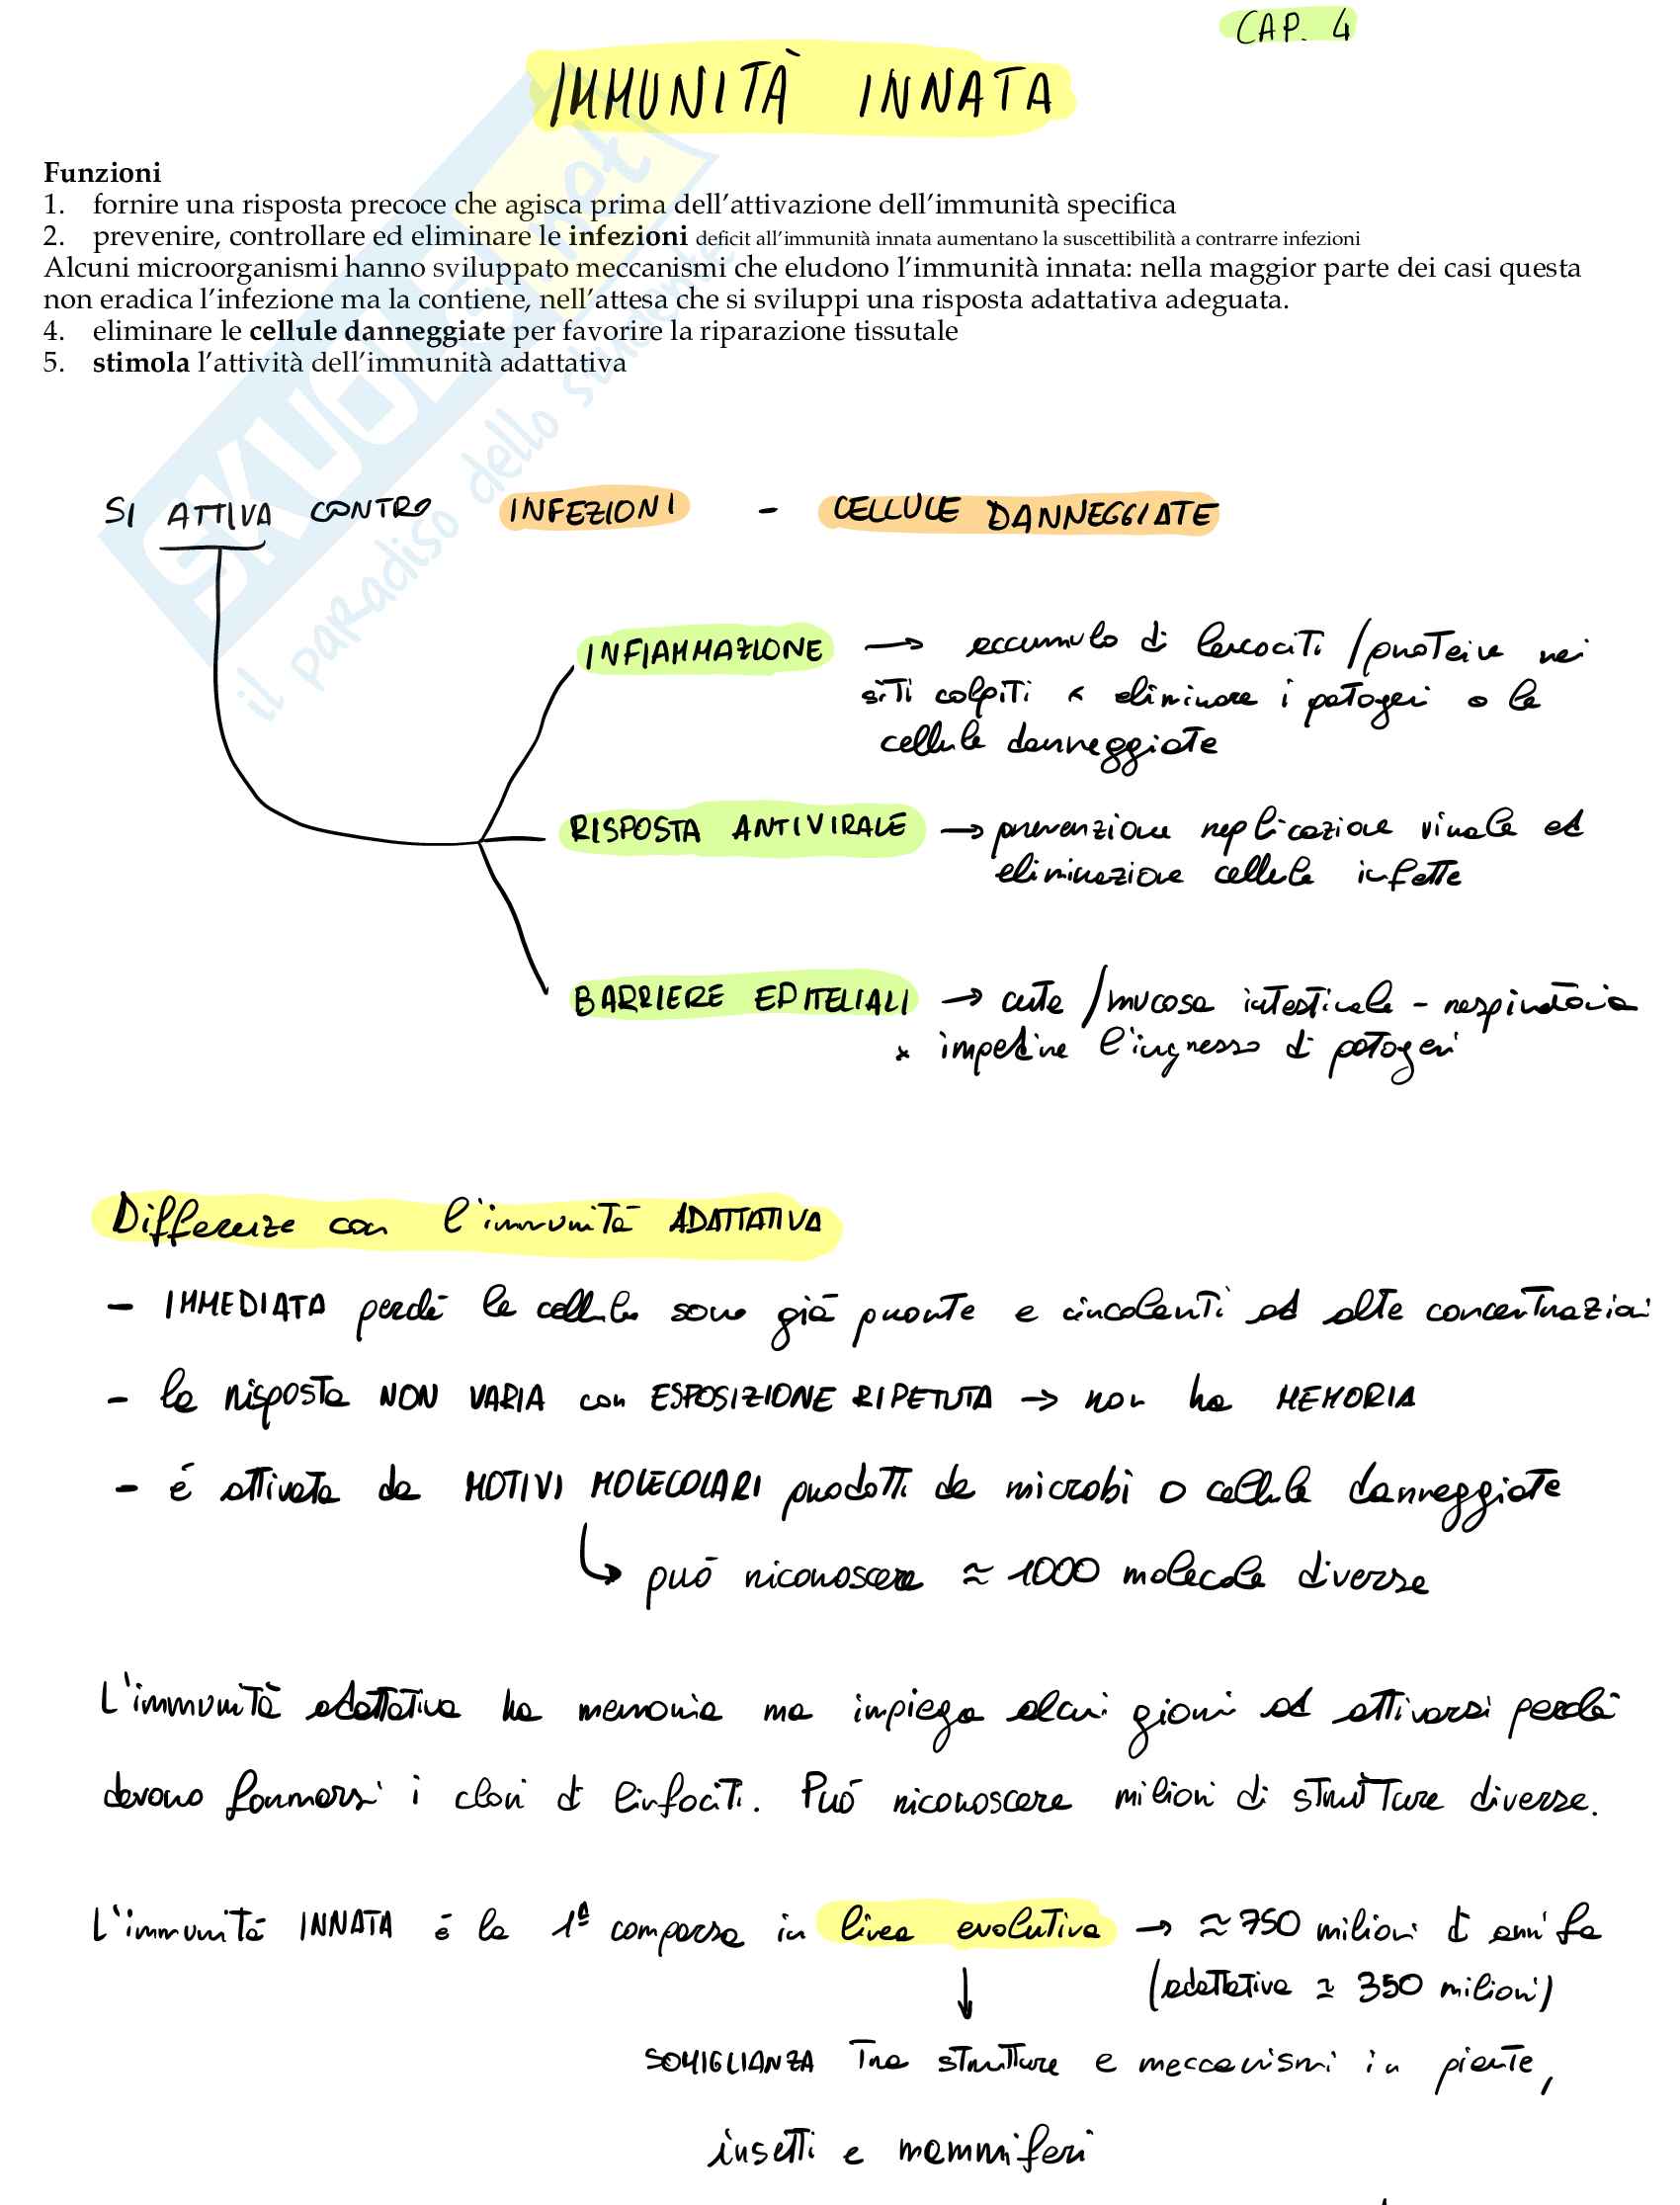 CAP. 4
IMMUNITÀ INNATA
Funzioni
1. fornire una risposta precoce che agisca prima dell’attivazione dell’immunità specifica
2. prevenire, controllare ed eliminare le infezioni deficit all’immunità innata aumentano la suscettibilità a contrarre infezioni
Alcuni microorganismi hanno sviluppato meccanismi che eludono l’immunità innata: nella maggior parte dei casi questa
non eradica l’infezione ma la contiene, nell’attesa che si sviluppi una risposta adattativa adeguata.
4. eliminare le cellule danneggiate per favorire la riparazione tissutale
5. stimola l’attività dell’immunità adattativa
SKUOLA.net
il paradiso dello studente
SI ATTIVA CONTRO INFEZIONI - CELLULE DANNEGGIATE
INFIAMMAZIONE → accumulo di leucociti / proteine nei
siti colpiti x eliminare i patogeni o le
cellule danneggiate
RISPOSTA ANTIVIRALE → prevenzione replicazione virale ed
eliminazione cellule infette
BARRIERE EPITELIALI → cute / mucosa intestinale - respiratoria
x impedire l'ingresso di patogeni
Differenze con l'immunità ADATTATIVA
- IMMEDIATA perché le cellule sono già pronte e circolanti ad alte concentrazioni
- la risposta NON VARIA con ESPOSIZIONE RIPETUTA → non ha MEMORIA
- è attivata da MOTIVI MOLECOLARI prodotti da microbi o cellule danneggiate
↳ può riconoscere ≈ 1000 molecole diverse
L'immunità adattativa ha memoria ma impiega alcuni giorni ad attivarsi perché
devono formarsi i cloni di linfociti. Può riconoscere milioni di strutture diverse.
L'immunità INNATA è la 1ª comparsa in linea evolutiva → ≈ 750 milioni di anni fa
(adattativa ≃ 350 milioni)
↓
SOMIGLIANZA tra strutture e meccanismi in piante,
insetti e mammiferi